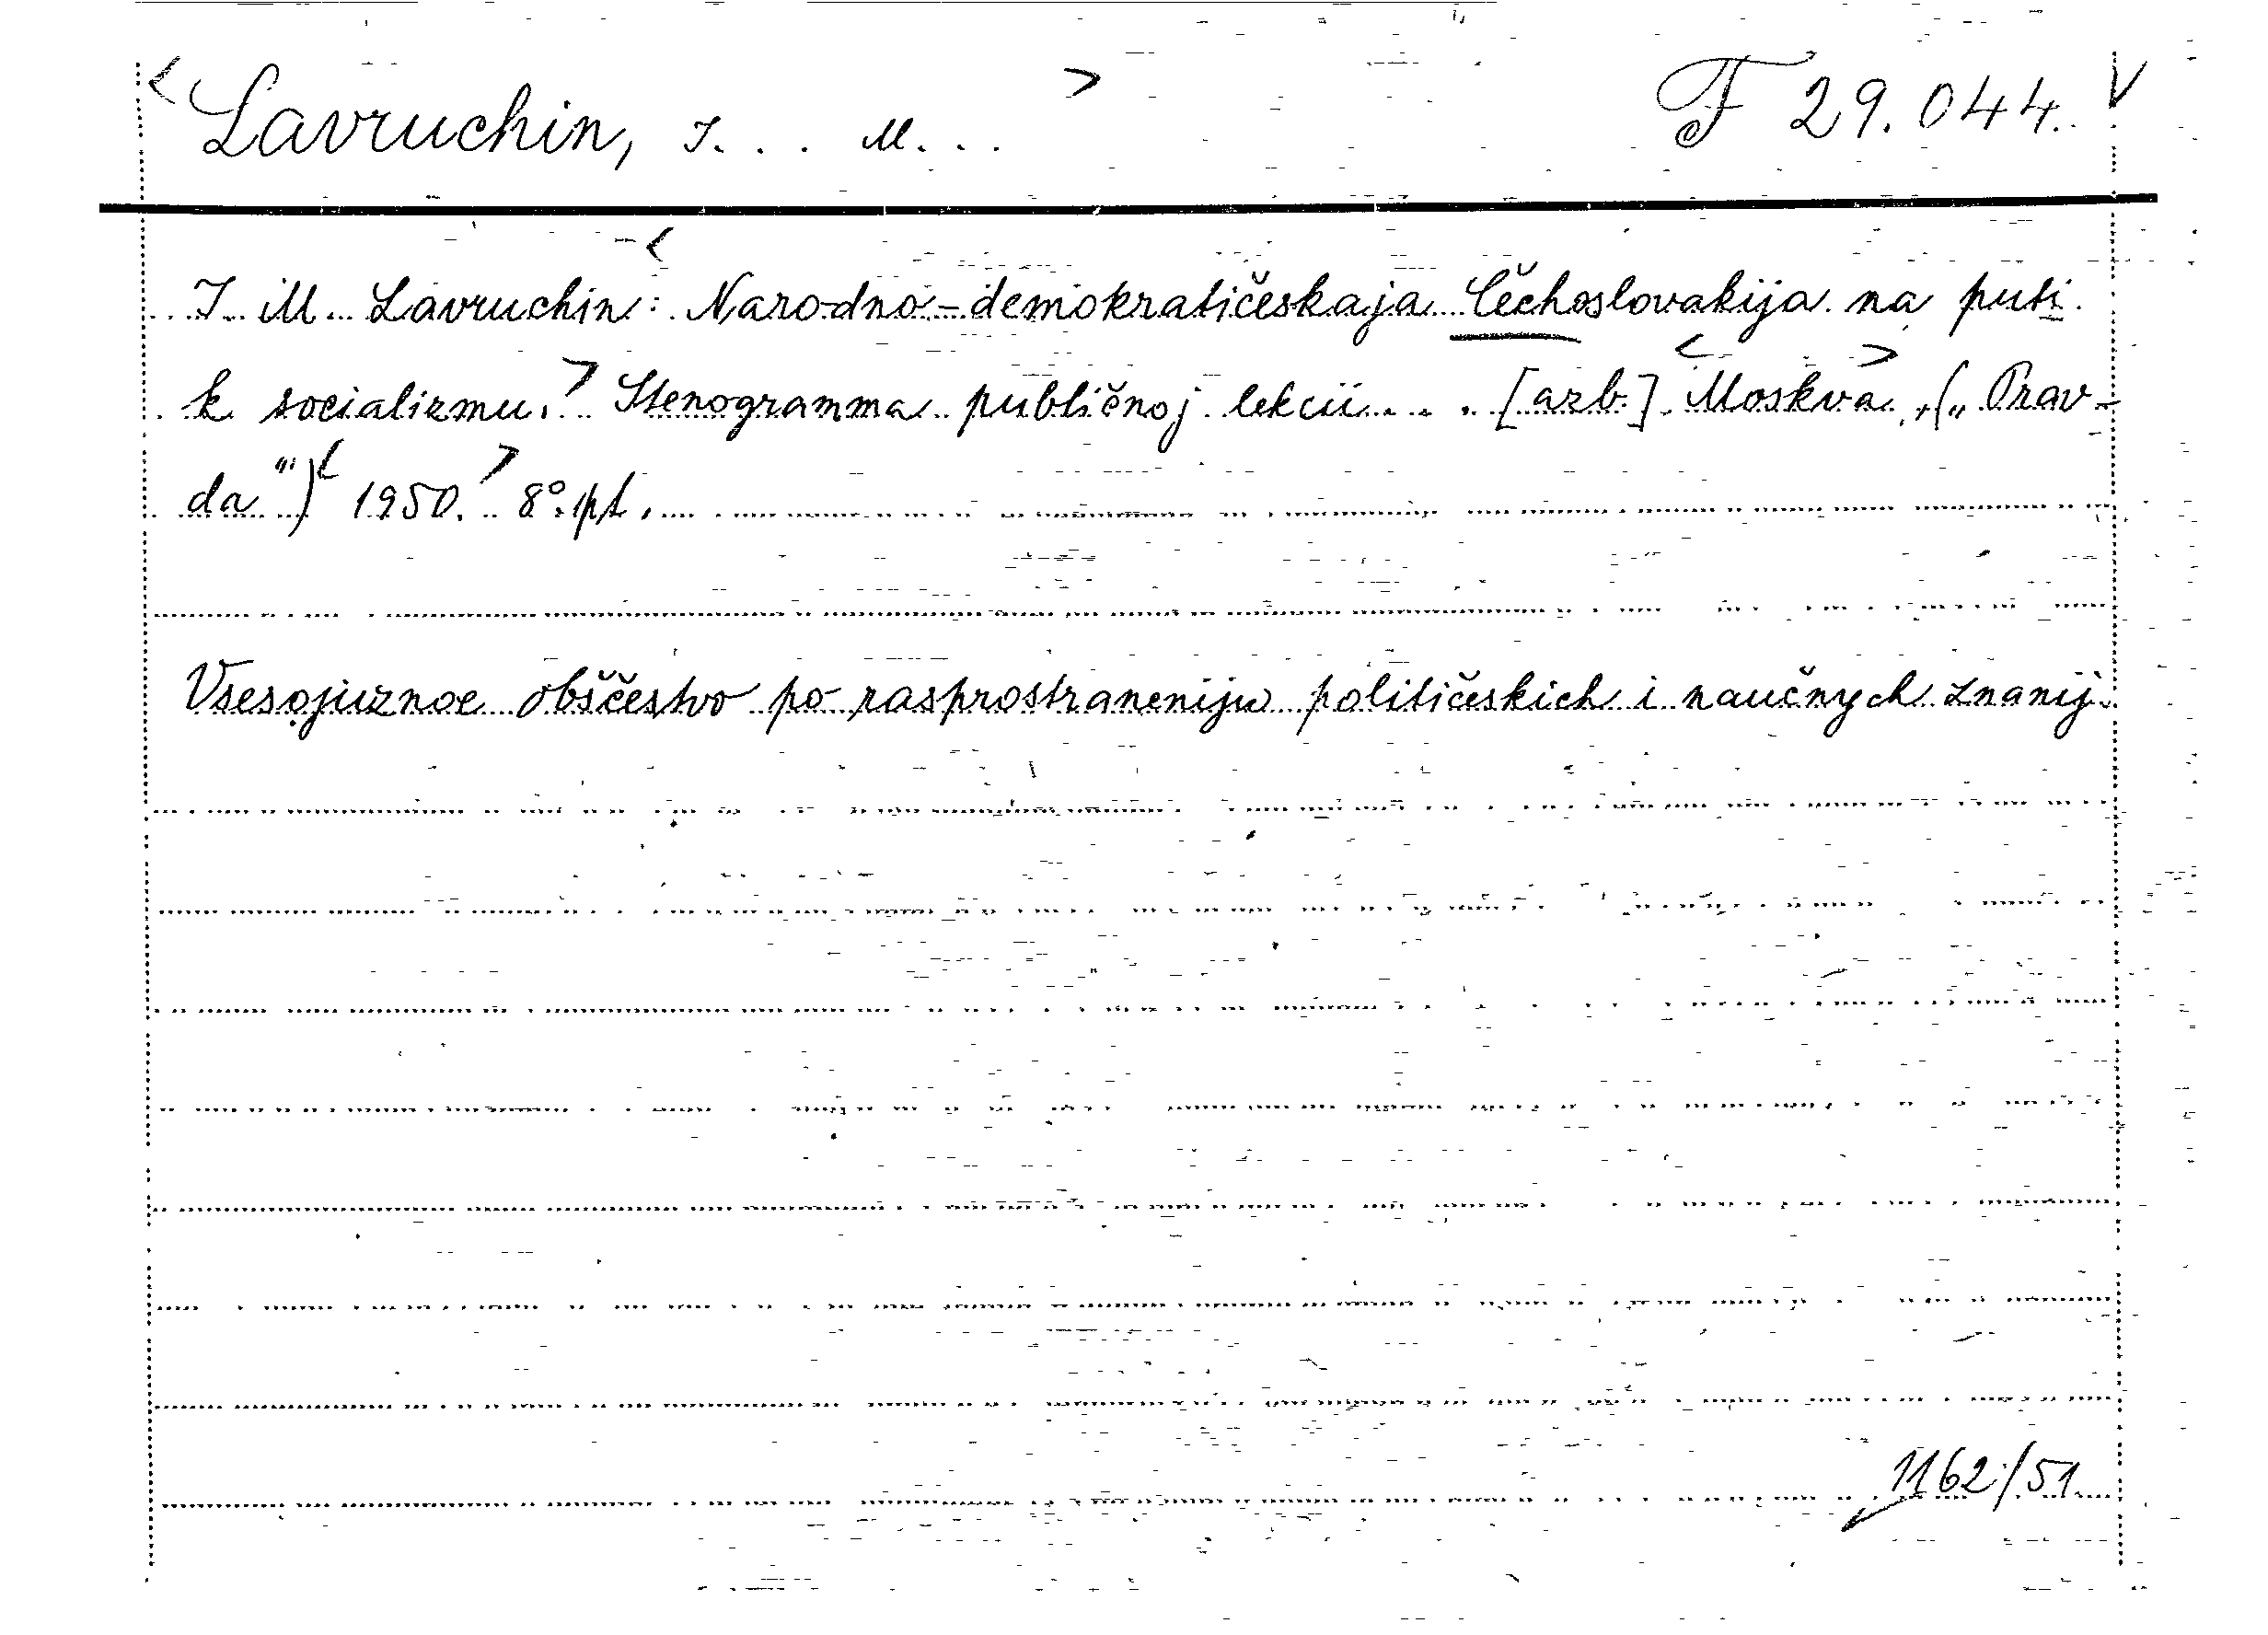 <Lavruchin, I... M...> F 29.044. V
I. M. Lavruchin: <Narodno-demokratičeskaja Čechoslovakija na puti
k socializmu.> Stenogramma publičnoj lekcii... [azb.] <Moskva>, („Prav-
da“) <1950.> 8°. pt.
Vsesojuznoe obščestvo po rasprostraneniju političeskich i naučnych znanij.
1162/51